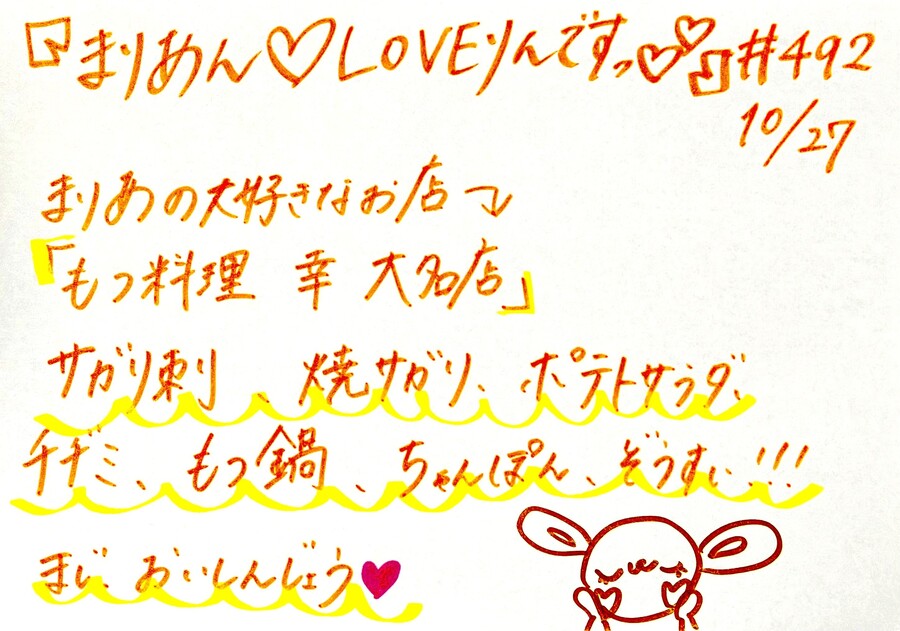 『まりあん♡LOVEりんですっ♡♡』#492
10/27
まりあの大好きなお店⤵
「もつ料理 幸 大名店」
サガリ刺、焼サガリ、ポテトサラダ、
チヂミ、もつ鍋、ちゃんぽん、ぞうすい!!!
まじ、おいしんじょう♥